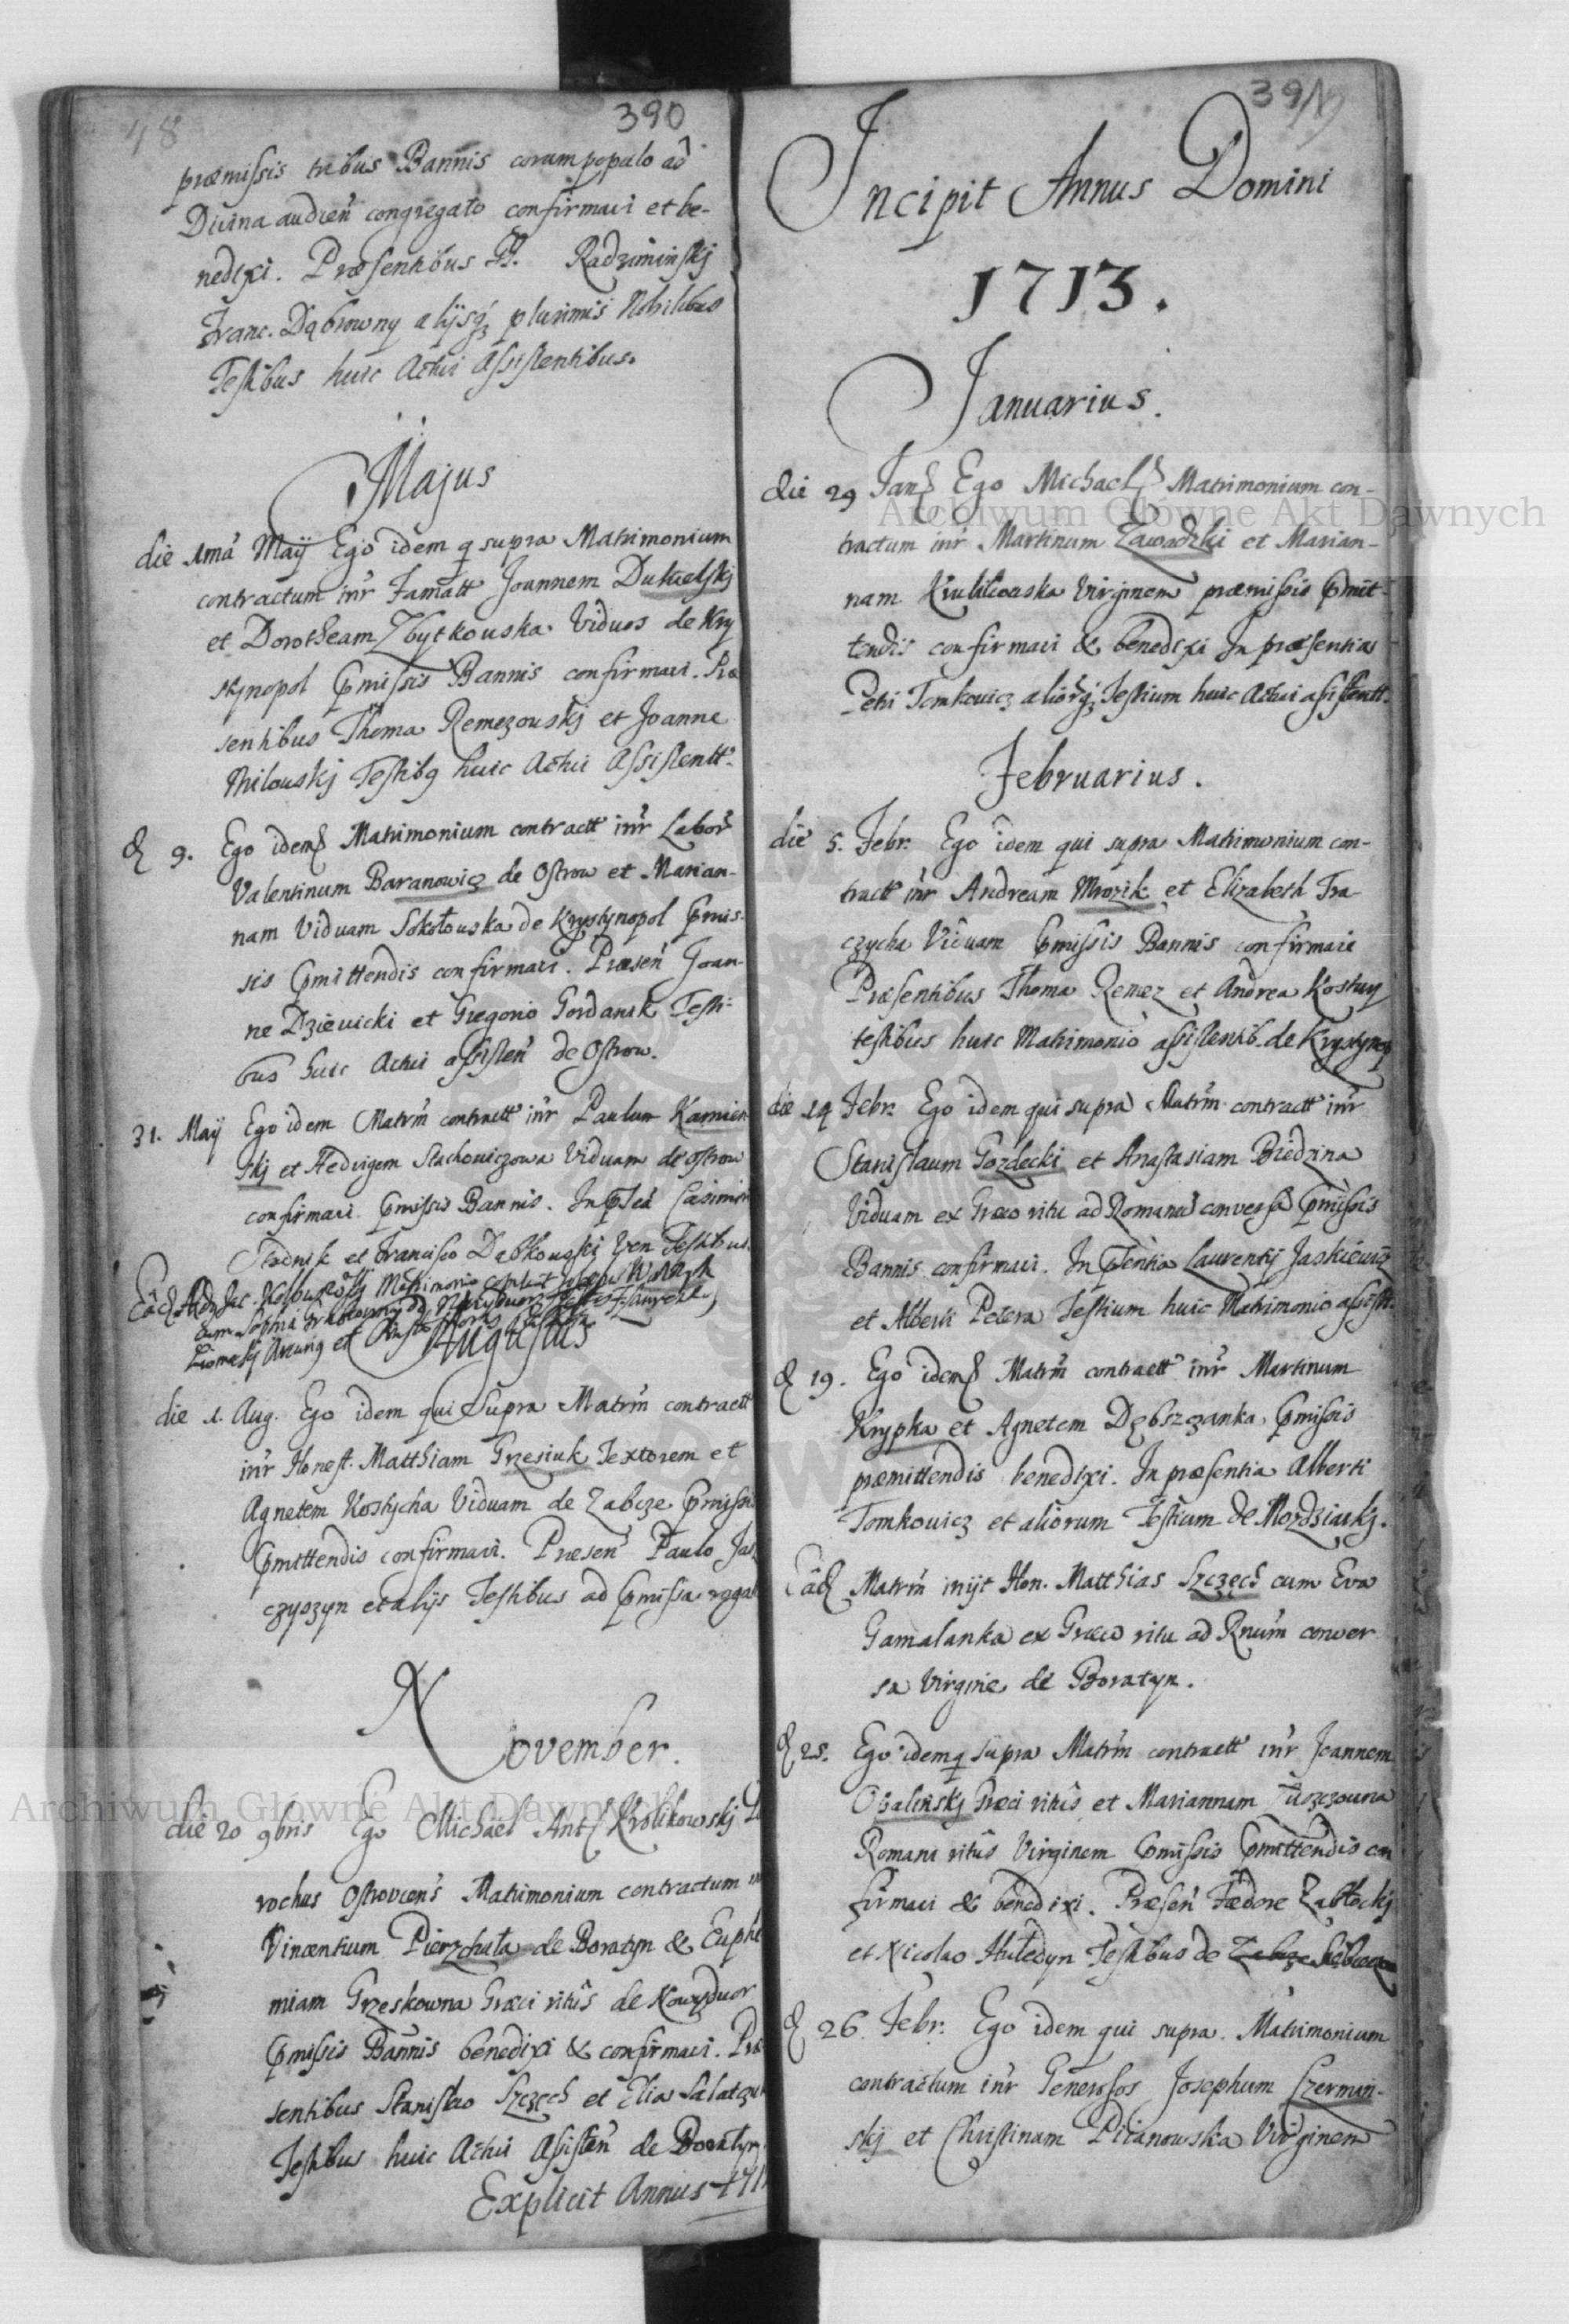 48
390
præmissis tribus Bannis coram populo ad
Divina audien̄ congregato confirmavi et be-
nedixi. Præsentibus Radziminskj
Franc. Dąbrowny alijsq; plurimis Nobilibus
Testibus huic Actui Assistentibus.
Majus
die 1mâ Maÿ Ego idem q supra Matrimonium
contractum inr̄ Famatt Joannem
et Dorotheam Zbytkouska Viduos de Kry
stynopol Pmissis Bannis confirmavi. Præ
sentibus Thoma Remezouskj et Joanne
Milouskj Testibq huic Actui Assistentt.
d 9. Ego idem Matrimonium contractt inr̄ Labor
Valentinum Baranowicz de Ostrow et Marian-
nam Viduam Sokołouska de Krystynopol Pmis-
sis Pmittendis confirmavi. Præsen̄ Joan-
ne Dzievicki et Gregorio Gordanik Testi-
bus huic Actui assisten̄ de Ostrow.
31. Maÿ Ego idem Matrm̄ contractt inr̄ Paulum Kamien
skj et Hedvigem Stachoviczowa Viduam de Ostrow
confirmavi Pmissis Bannis. In Casimir
Stadnik et Francisco Dąbkouski Testibus
Matrimonio
cum Sophia
et
Augustus
die 1. Aug. Ego idem qui Supra Matrm̄ contractt
inr̄ Honest. Matthiam Grzesiuk Textorem et
Agnetem Kostycha Viduam de Zabcze Pmissis
Pmittendis confirmavi. Præsen̄ Paulo Jas
czyszyn et alijs Testibus ad Pmissa rogat
November.
die 20 9bris Ego Michael Ant Krolikowskj
rochus Ostrovien̄s Matrimonium contractum in
Vincentium Pierzchała de Boratyn & Euphe
miam Grzeskowna Græci ritûs de Nowydwor
Pmissis Bannis benedixi & confirmavi. Præ
sentibus Stanislao Szczęch et Elia
Testibus huic Actui Assisten̄ de Boratyn
Explicit Annus 171
391
Incipit Annus Domini
1713.
Januarius.
die 29 Jan Ego Michael Matrimonium con-
tractum inr̄ Martinum Zawadzki et Marian-
nam Krulikouska Virginem præmissis Pmit-
tendis confirmavi & benedixi In præsentia
Petri Tomkovicz aliorq; Testium huic Actui assistentt.
Februarius.
die 5. Febr. Ego idem qui supra Matrimonium con-
tractt inr̄ Andream Mrozik et Elizabeth Tra-
czycha Viduam Pmissis Bannis confirmavi
Præsentibus Thoma Remez et Andrea Kostuy
testibus huic Matrimonio assistentib. de Krystynop
die 14 Febr. Ego idem qui supra Matrm̄ contractt inr̄
Stanislaum Gozdecki et Anastasiam Biedzina
Viduam ex Græco ritu ad Romanū conversā Pmissis
Bannis confirmavi. In Pſentia Laurentij Jaskiewicz
et Alberti Petera Testium huic Matrimonio assistt.
d 19. Ego idem Matrm̄ contractt inr̄ Martinum
Krypka et Agnetem Dębszczanka Pmissis
præmittendis benedixi. In præsentia Alberti
Tomkovicz et aliorum Testium de Mordziaskj.
Eâd Matrm̄ inijt Hon. Matthias Szczęch cum Eva
Gamalanka ex Græco ritu ad Rnūm conver
sa Virgine de Boratyn.
d 25. Ego idem q supra Matrm̄ contractt inr̄ Joannem
Obalinskj Græci ritûs et Mariannam Tuszczouna
Romani ritûs Virginem Pmissis Pmittendis con
firmavi & benedixi. Præsen̄ Fedore Zabłockj
et Nicolao Hułedyn Testibus de Zabcze
d 26 Febr. Ego idem qui supra Matrimonium
contractum inr̄ Generosos Josephum Szermin-
skj et Christinam Picanowska Virginem
Archiwum Główne Akt Dawnych
Archiwum Główne Akt Dawnych